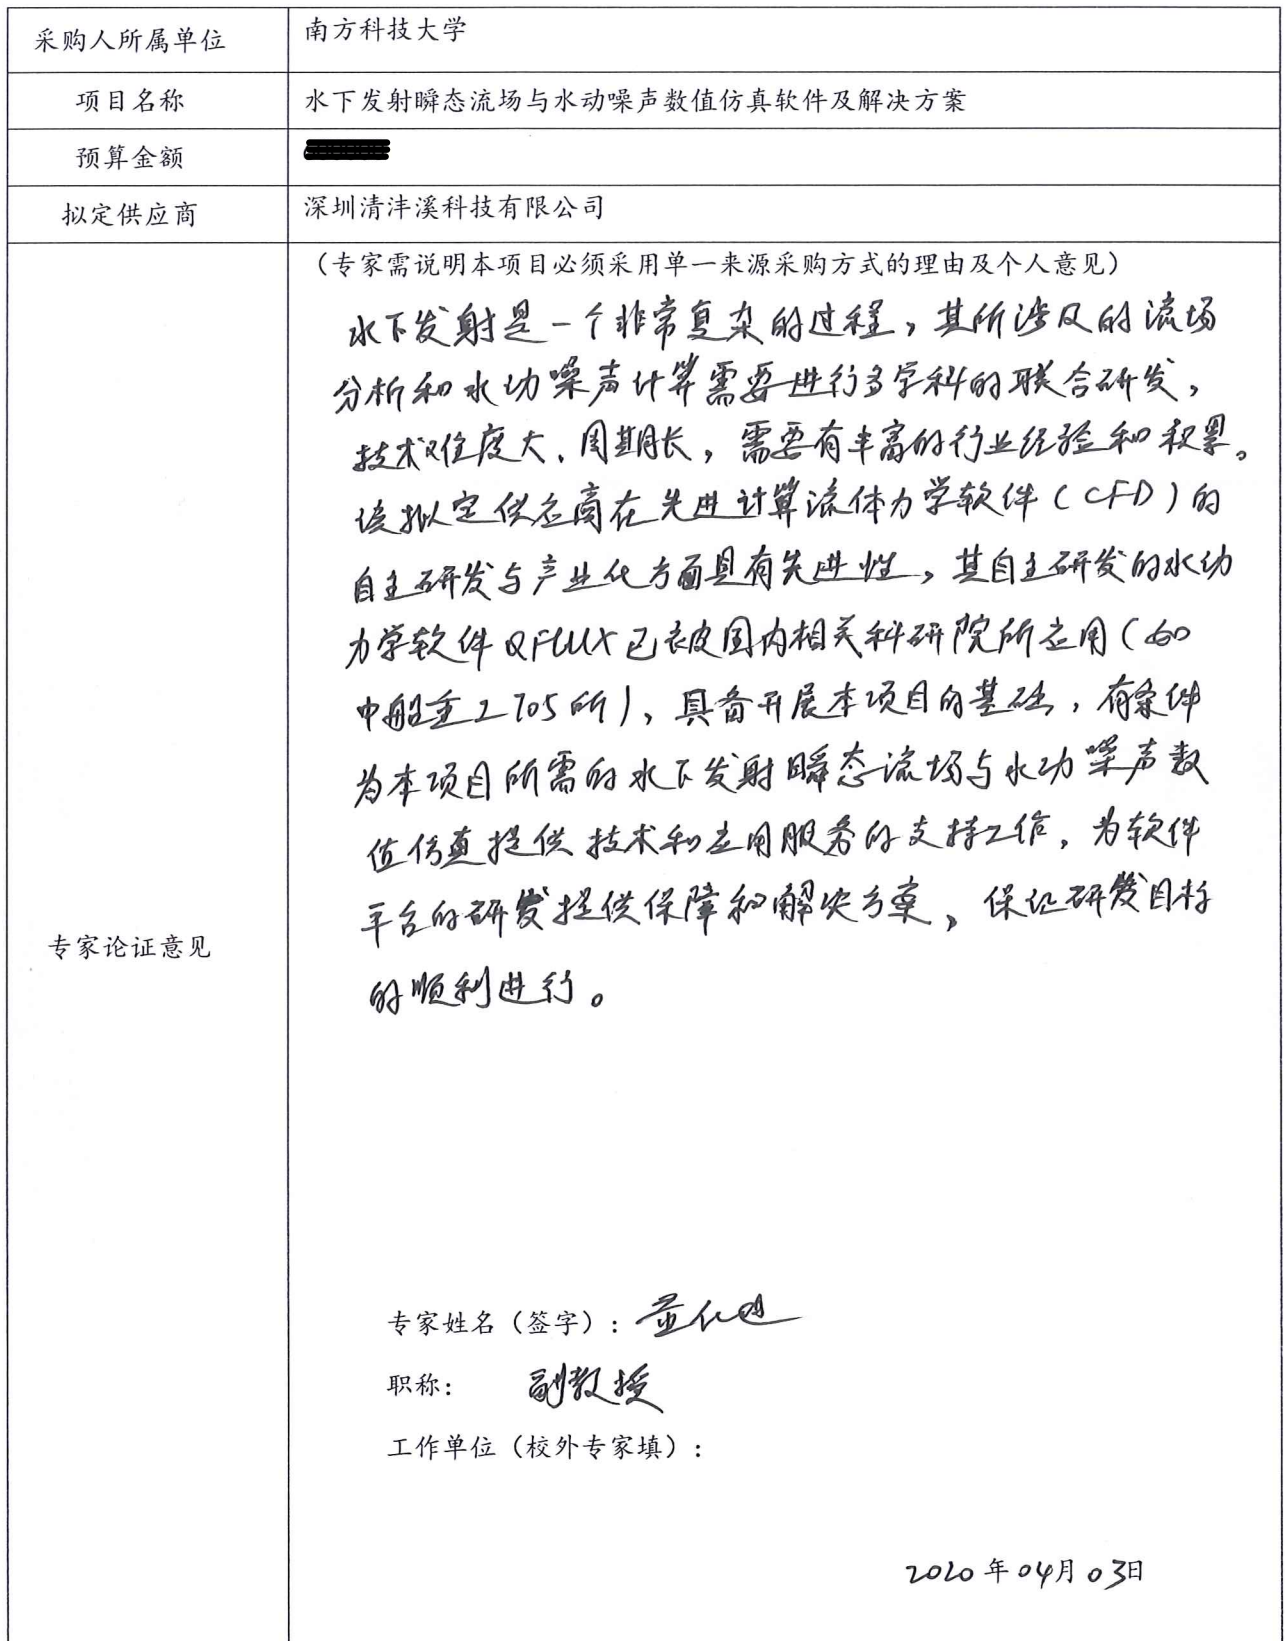 采购人所属单位
南方科技大学
项目名称
水下发射瞬态流场与水动噪声数值仿真软件及解决方案
预算金额
拟定供应商
深圳清沣溪科技有限公司
(专家需说明本项目必须采用单一来源采购方式的理由及个人意见)
水下发射是一个非常复杂的过程，其所涉及的流场
分析和水动噪声计算需要进行多学科的联合研发，
技术难度大、周期长，需要有丰富的行业经验和积累。
该拟定供应商在先进计算流体力学软件(CFD)的
自主研发与产业化方面具有先进性，其自主研发的水动
力学软件QFLUX已被国内相关科研院所应用(如
中船重工705所)，具备开展本项目的基础，有条件
为本项目所需的水下发射瞬态流场与水动噪声数
值仿真提供技术和应用服务的支持工作，为软件
平台的研发提供保障和解决方案，保证研发目标
的顺利进行。
专家论证意见
专家姓名(签字):
职称: 副教授
工作单位(校外专家填):
2020年04月03日